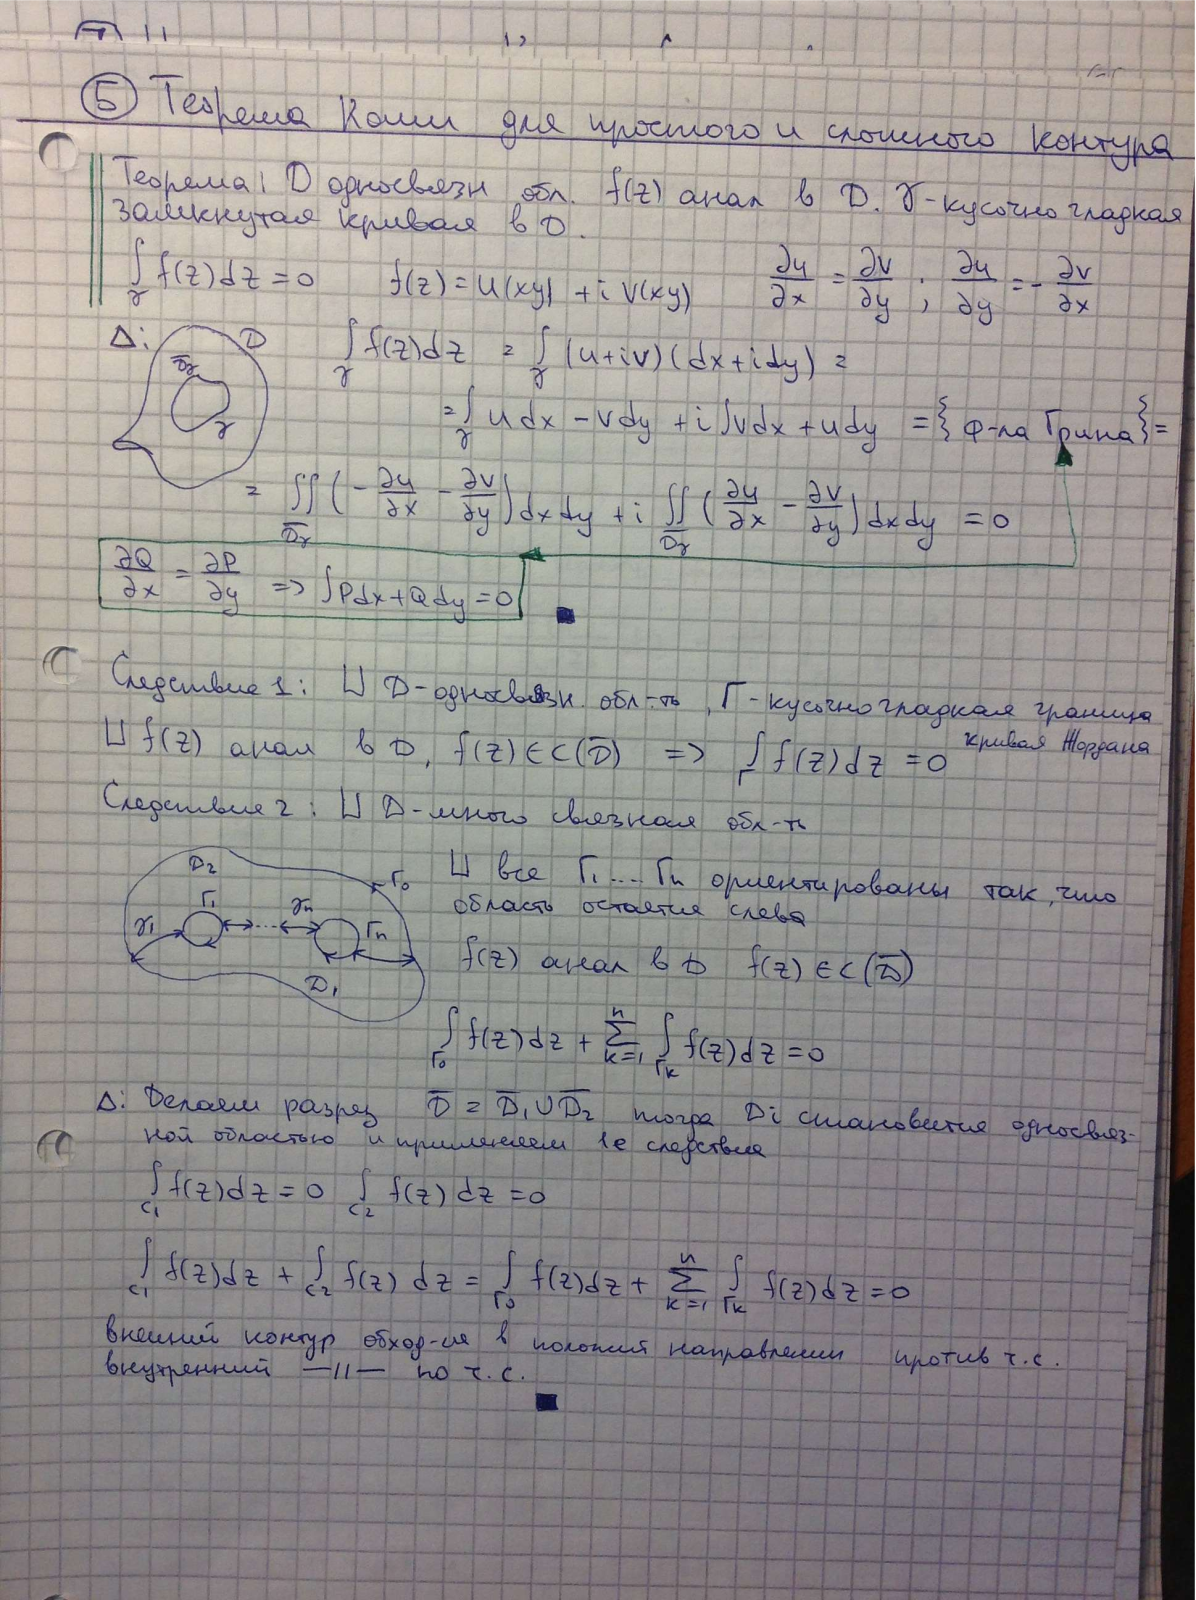 ⑤ Теорема Коши для простого и сложного контура
Теорема: D односвязн обл. f(z) анал в D. γ-кусочно гладкая
замкнутая кривая в D.
∫_γ f(z)dz = 0   f(z) = u(xy) + i v(xy)   ∂u/∂x = ∂v/∂y ; ∂u/∂y = - ∂v/∂x
Δ:   D   D̅_γ   γ   ∫_γ f(z)dz = ∫_γ (u+iv)(dx+idy) =
= ∫_γ u dx - v dy + i ∫ v dx + u dy = { Ф-ла Грина } =
= ∬_{D̅_γ} (- ∂u/∂x - ∂v/∂y) dx dy + i ∬_{D̅_γ} (∂u/∂x - ∂v/∂y) dx dy = 0
∂Q/∂x = ∂P/∂y => ∫ P dx + Q dy = 0
Следствие 1: ⊔ D-односвязн. обл-ть, Γ-кусочно гладкая граница
кривая Жордана
⊔ f(z) анал в D, f(z) ∈ C(D̅) => ∫_Γ f(z)dz = 0
Следствие 2: ⊔ D-много связная обл-ть
D₂   Γ₀   Γ₁   γ₁   ...   γn   Γn   D₁
⊔ все Γ₁....Γn ориентированы так, что
область остается слева
f(z) анал в D   f(z) ∈ C(D̅)
∫_{Γ₀} f(z)dz + Σ_{k=1}^{n} ∫_{Γk} f(z)dz = 0
Δ: Делаем разрез D̅ = D̅₁ ∪ D̅₂ тогда Di становится односвяз-
ной областью и применяем 1е следствие
∫_{C₁} f(z)dz = 0   ∫_{C₂} f(z)dz = 0
∫_{C₁} f(z)dz + ∫_{C₂} f(z)dz = ∫_{Γ₀} f(z)dz + Σ_{k=1}^{n} ∫_{Γk} f(z)dz = 0
внешний контур обход-ся в полож направлении против ч.с.
внутренний —11— по ч.с.